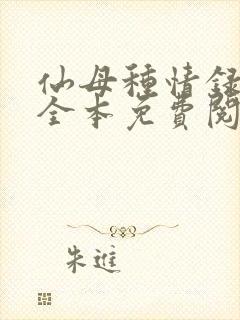 仙母種情録
全本免費閱
朱進